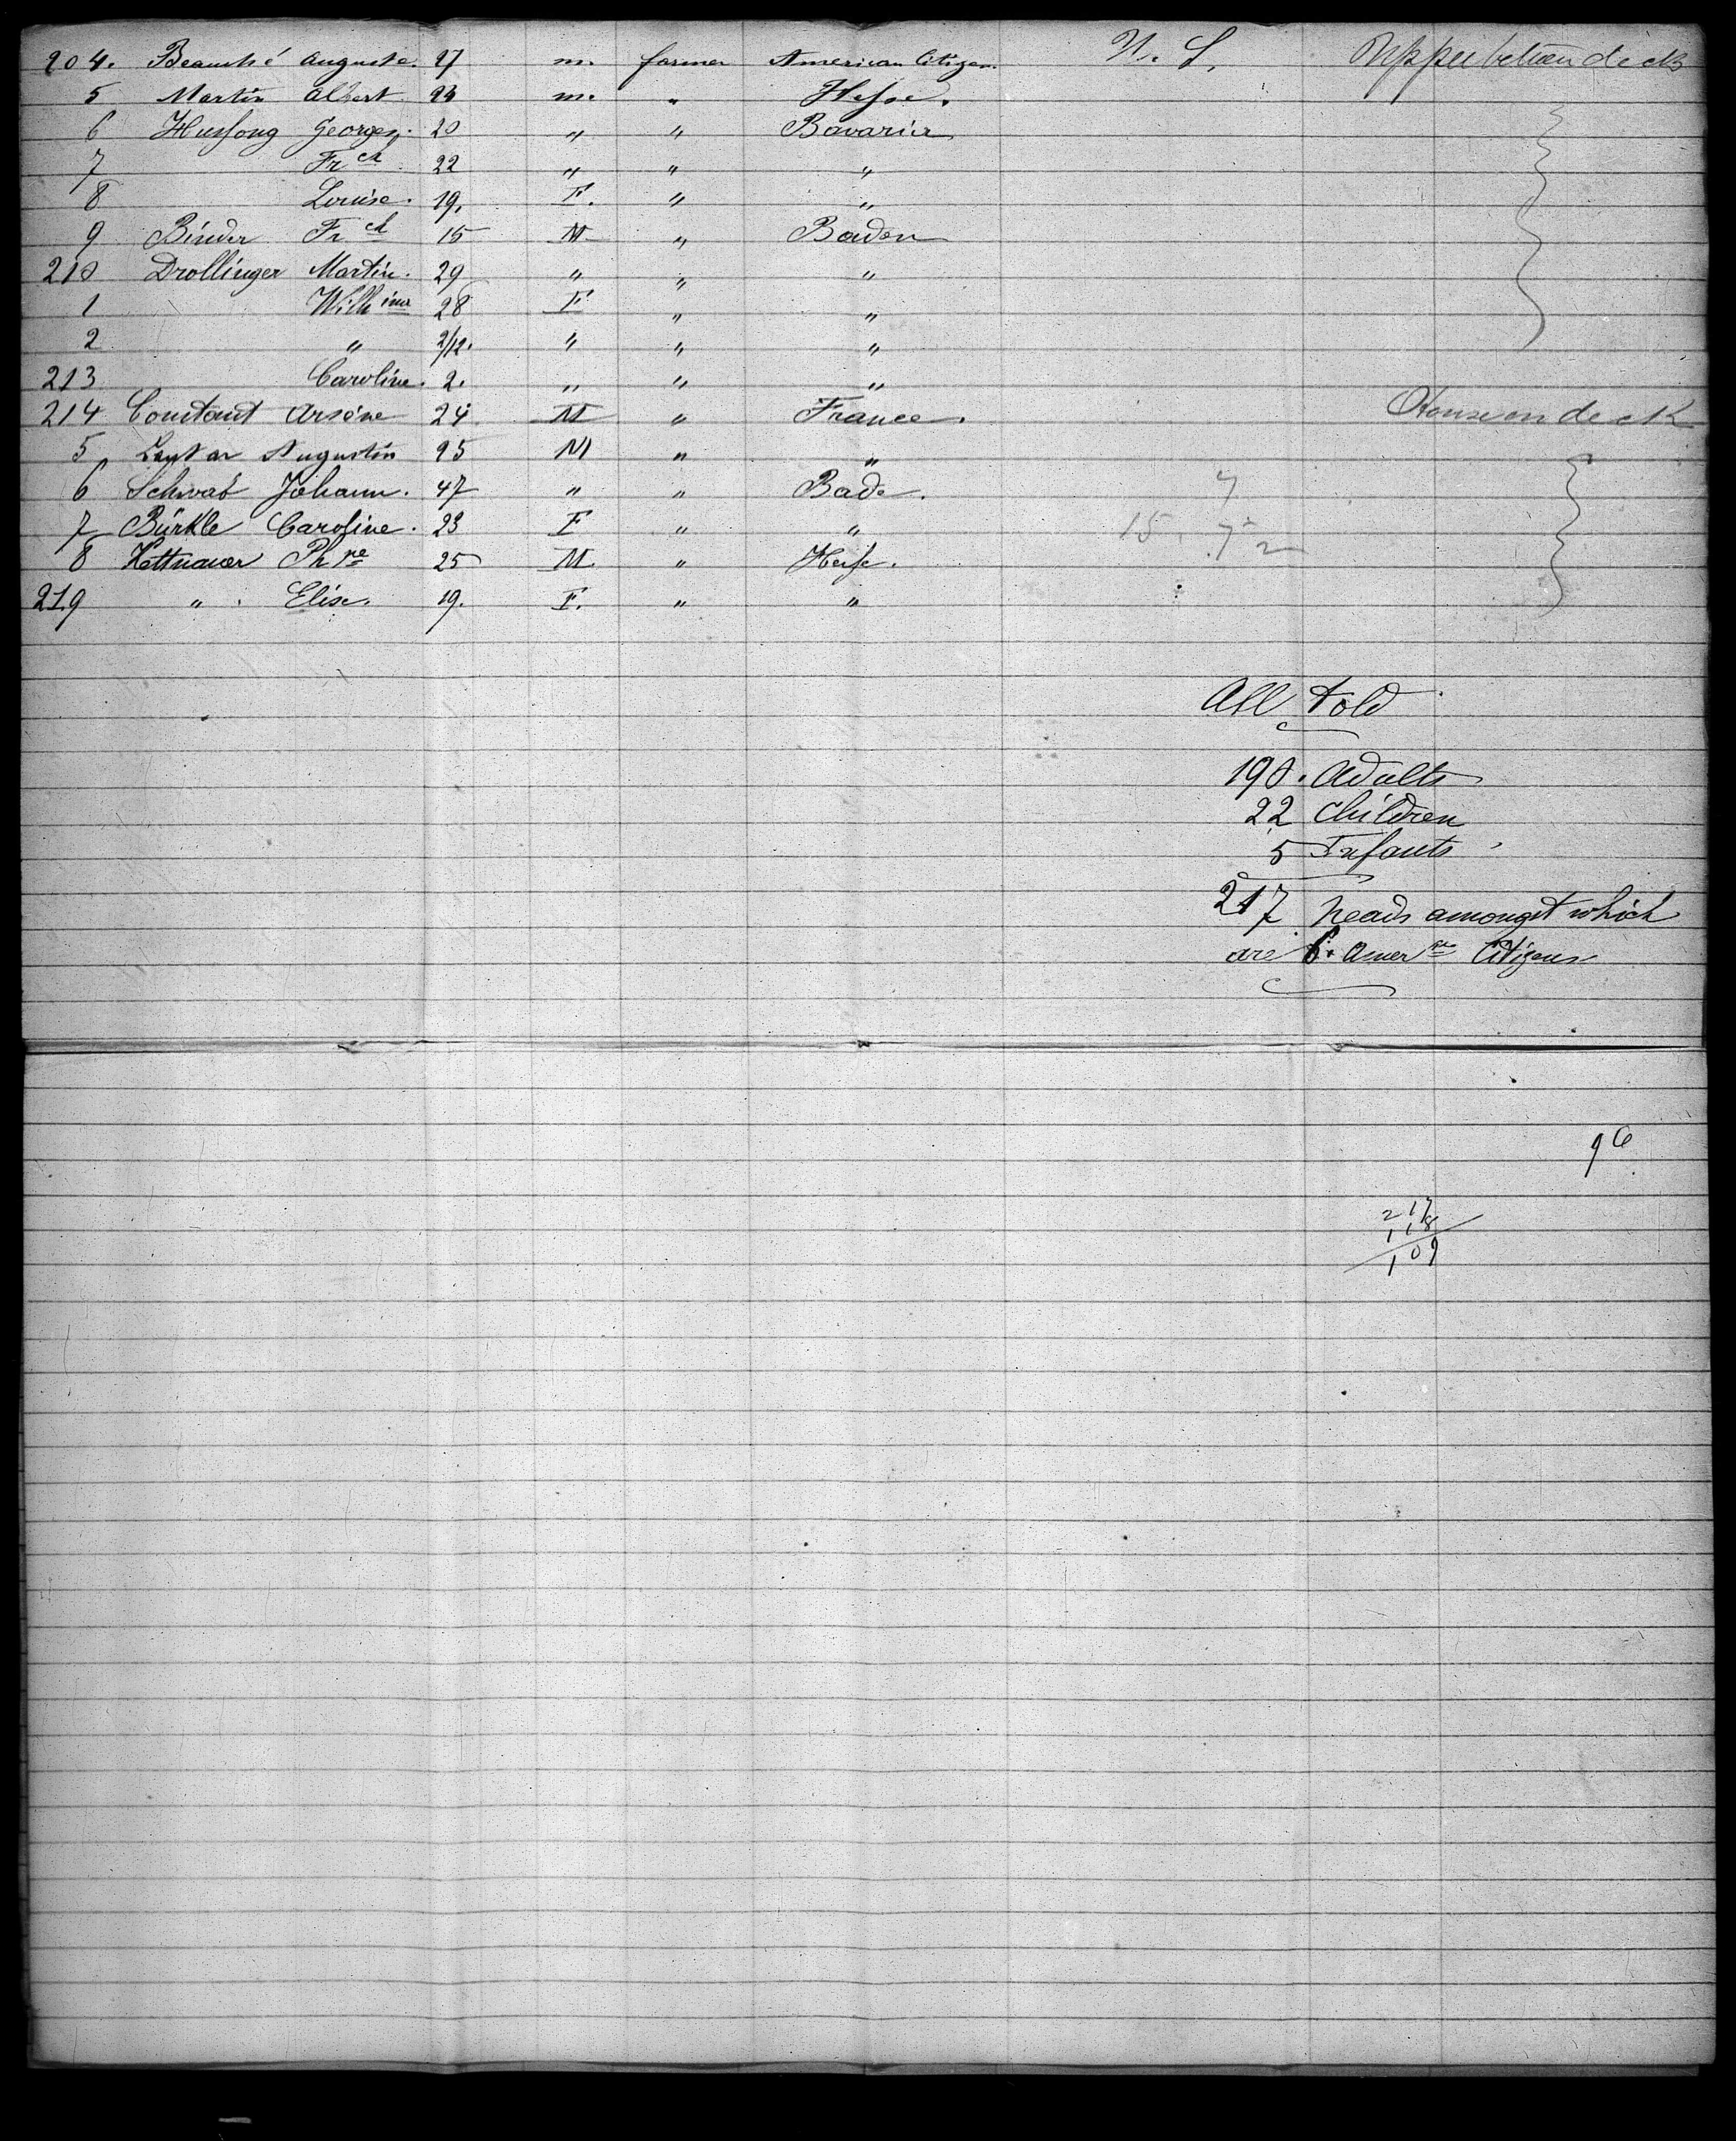 204. Beauché Auguste. 27 m. farmer American Citizen. U. S. Upper between decks
5 Martin Albert. 23 m. " Hesse.
6 Hussong Georges. 20 " " Bavaria
7 Frch 22 " " "
8 Louise. 19. F. " "
9 Binder Frch 15 M " Baden
210 Drollinger Martin. 29 " " "
1 Wilhina 28 F " "
2 " 2/12. " " "
213 Caroline. 2. " " "
214 Constant Arsène 24 M " France. House on deck
5 Augustin 25 M " "
6 Schwab Johann. 47 " " Bade.
7 Bürkle Caroline. 23 F " "
8 Kettnauer Phpe 25 M. " Hesse.
219 " Elise. 19. F. " "
All told
190. Adults
22 Children
5 Infants
217 heads amongst which
are 6. Amern Citizens
96
217
118
109